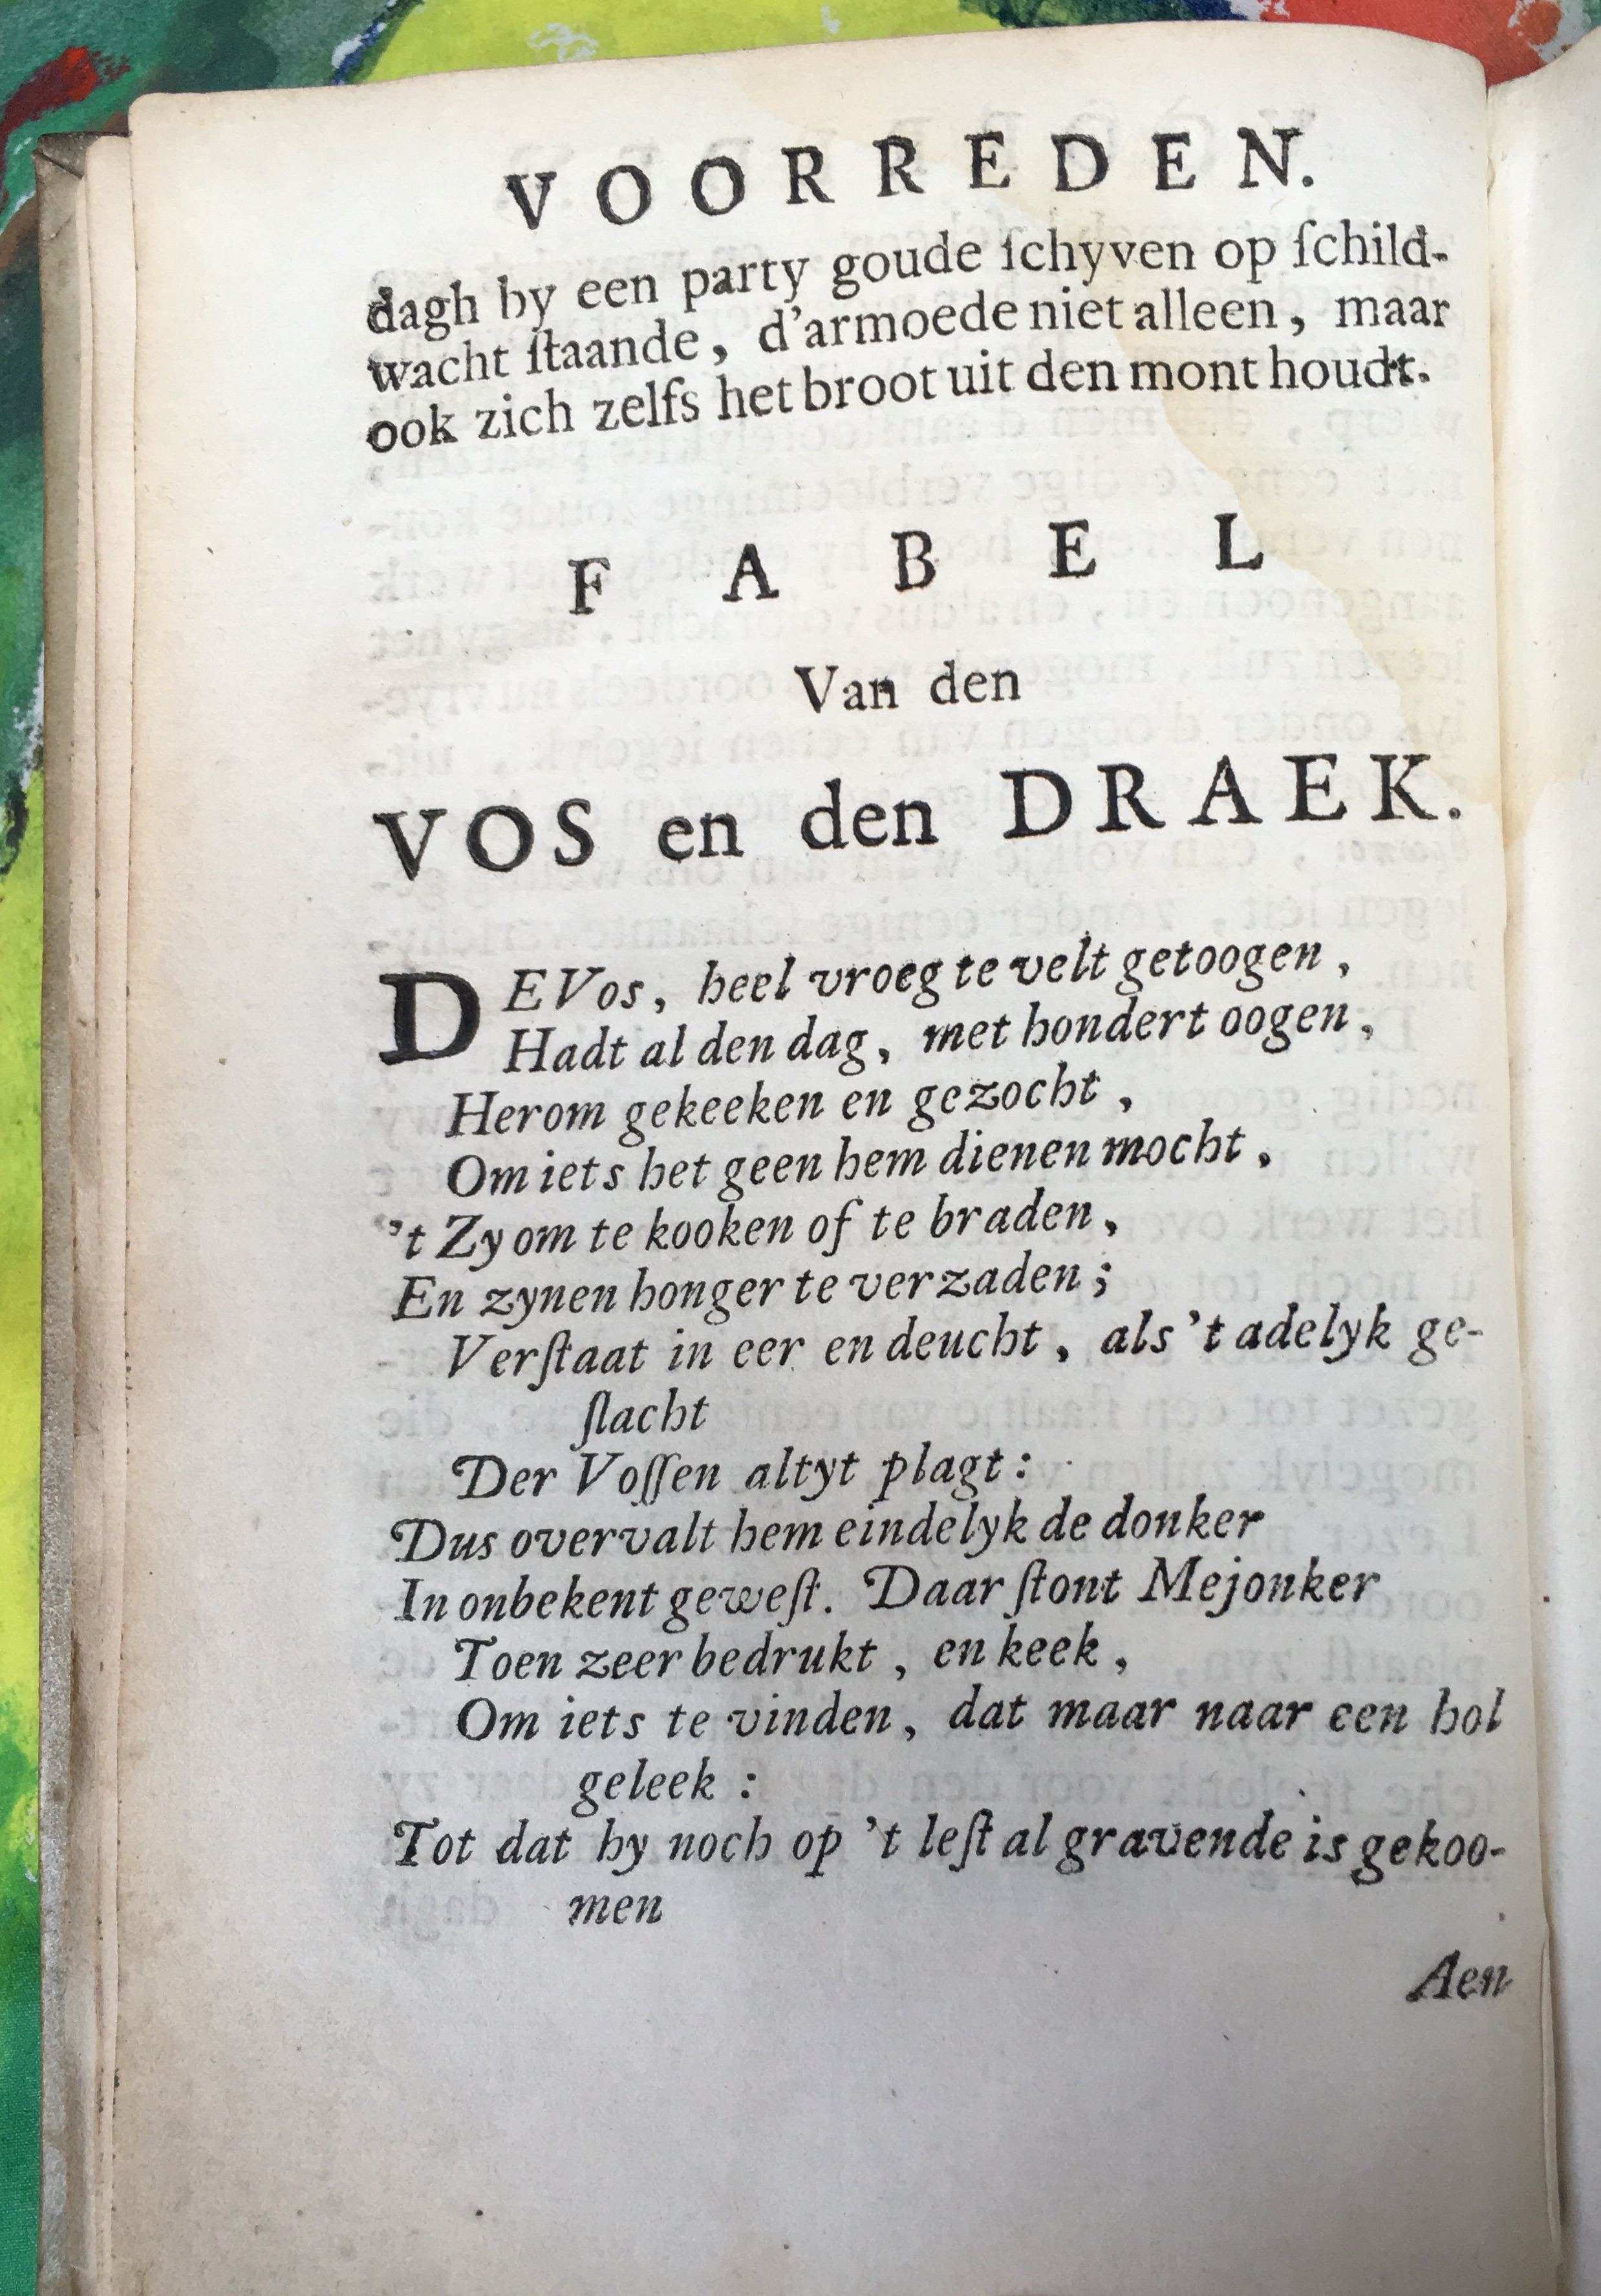 VOORREDEN.
dagh by een party goude ſchyven op ſchild-
wacht ſtaande, d'armoede niet alleen, maar
ook zich zelfs het broot uit den mont houdt.
FABEL
Van den
VOS en den DRAEK.
DE Vos, heel vroeg te velt getoogen,
Hadt al den dag, met hondert oogen,
Herom gekeeken en gezocht,
Om iets het geen hem dienen mocht,
't Zy om te kooken of te braden,
En zynen honger te verzaden;
Verſtaat in eer en deucht, als 't adelyk ge-
ſlacht
Der Voſſen altyt plagt:
Dus overvalt hem eindelyk de donker
In onbekent geweſt. Daar ſtont Mejonker
Toen zeer bedrukt, en keek,
Om iets te vinden, dat maar naar een hol
geleek:
Tot dat hy noch op 't leſt al gravende is gekoo-
men
Aen